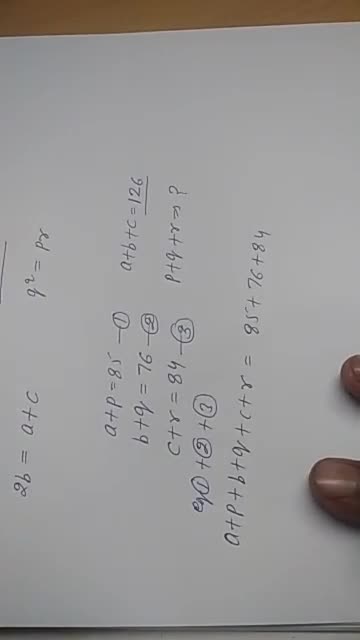 2b = a+c q² = pr
a+p = 85 —① a+b+c = 126
b+q = 76 —② p+q+r = ?
c+r = 84 —③
eq ① + ② + ③
a+p+b+q+c+r = 85+76+84